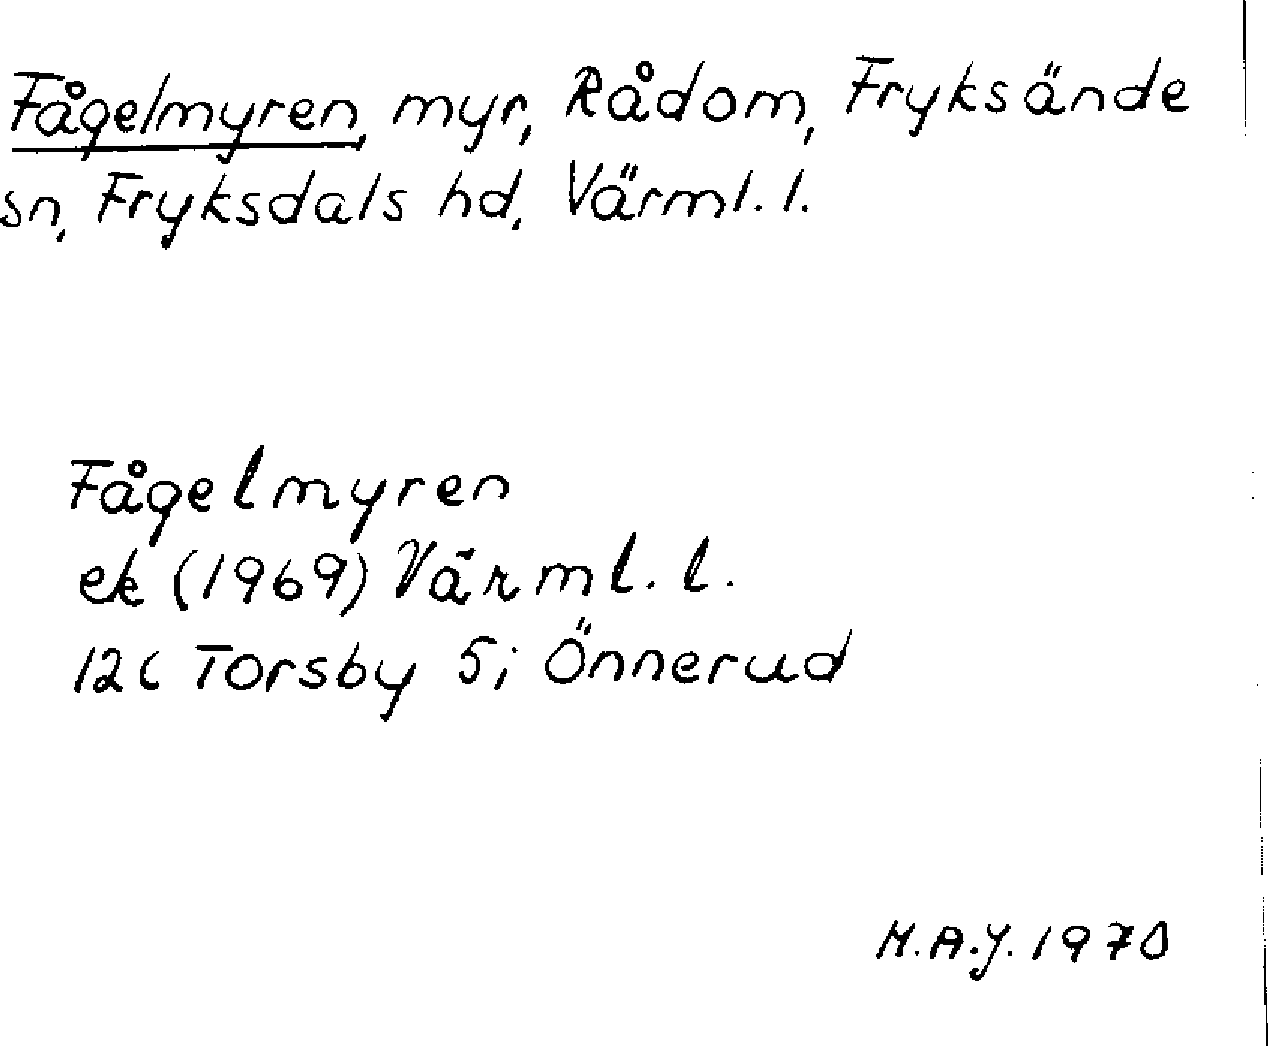 Fågelmyren, myr, Rådom, Fryksände
sn, Fryksdals hd, Värml. l.
Fågelmyren
ek (1969) Värml. l.
12C Torsby 5i Önnerud
M.A.J. 1970